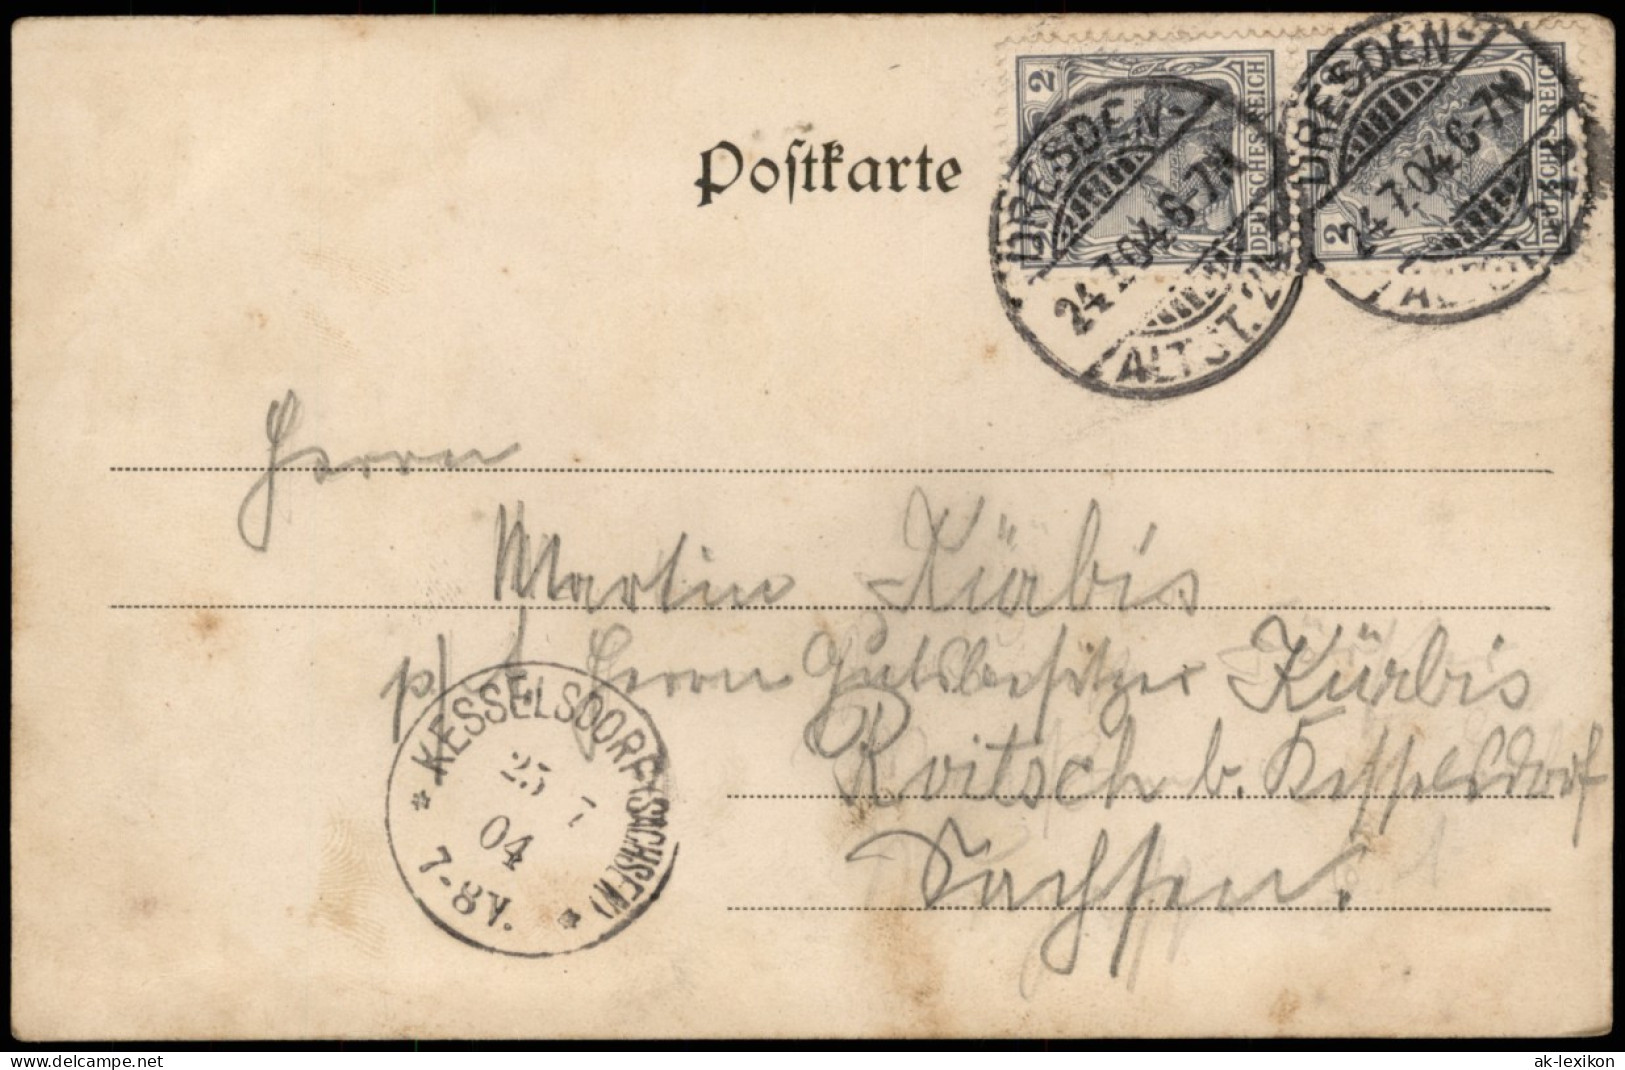 Postkarte
2 DEUTSCHES REICH
2 DEUTSCHES REICH
DRESDEN-
24.7.04.6-7N
ALTST. 24
DRESDEN-
24.7.04.6-7N
ALTST.
Herrn
Martin Kürbis
p/ Herrn Gutsbesitzer Kürbis
Roitsch b. Kesselsdorf
Sachsen.
* KESSELSDORF (SACHSEN) *
25 7
04
7-8V.
www.delcampe.net
ak-lexikon